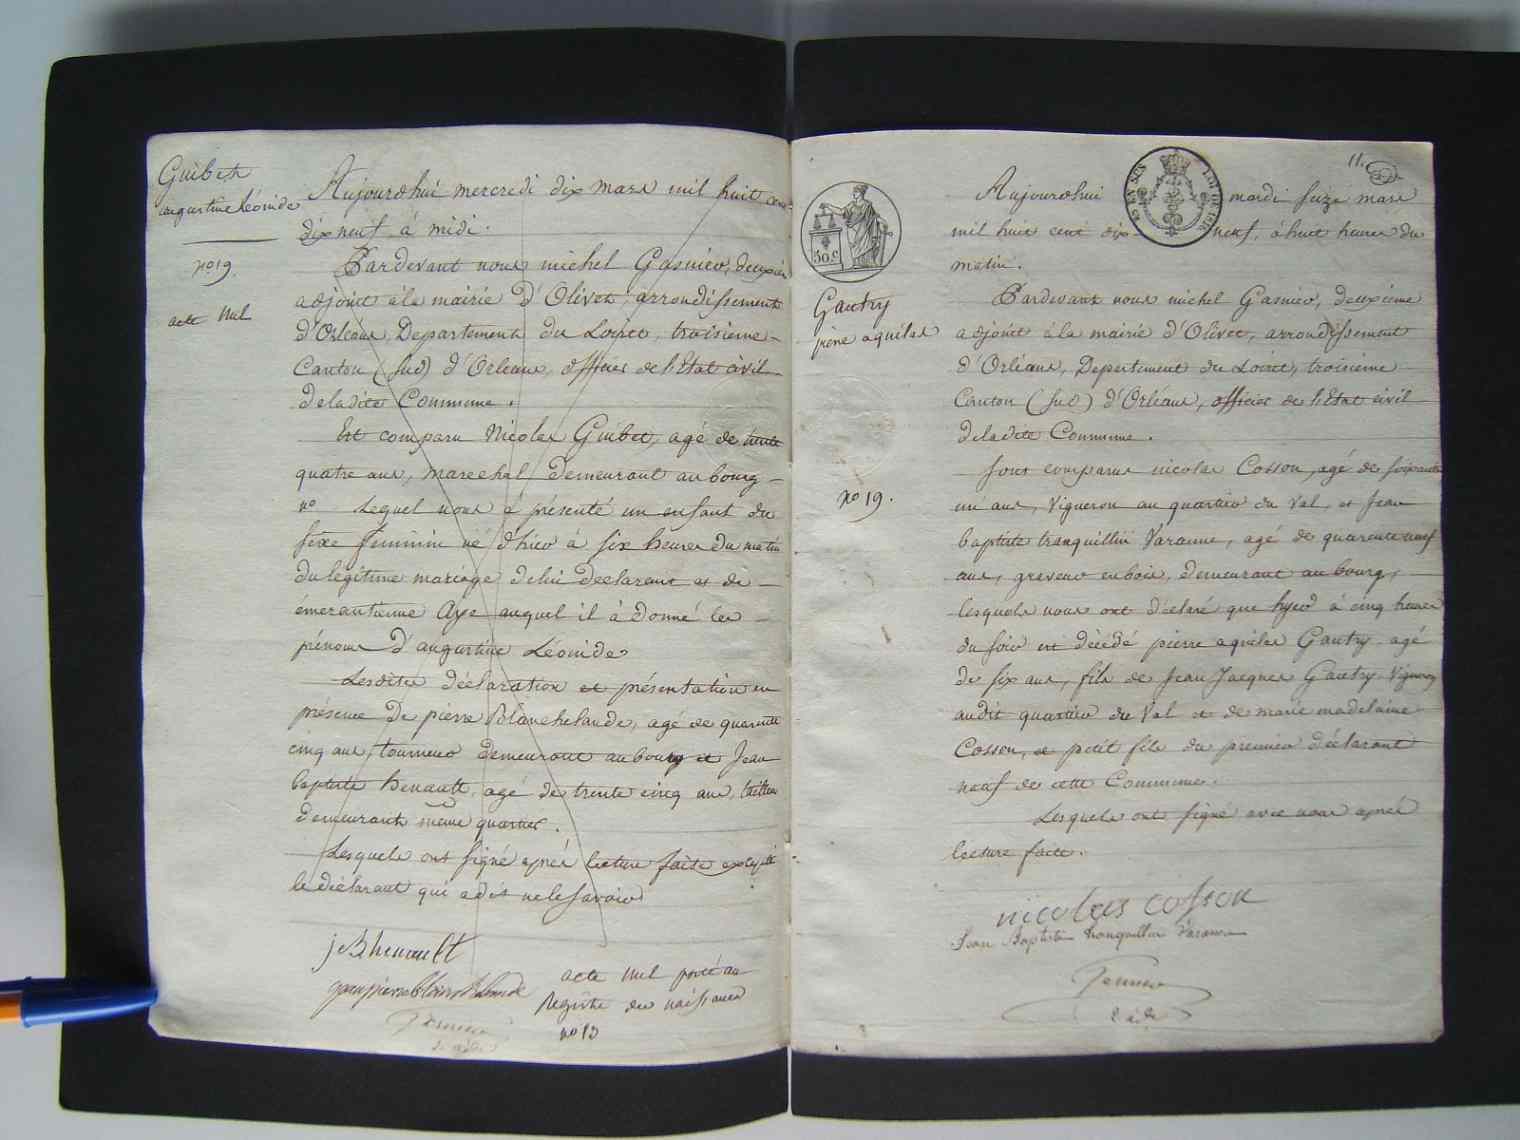 Guibet
augustine Léonide
no 19.
acte Nul
Aujourdhui mercredi dix mars mil huit cent
dix neuf à midi.
Pardevant nous michel Gasnier, deuxième
adjoint à la mairie d'Olivet, arrondissement
d'Orleans, Departement du Loiret, troisieme
Canton (Sud) d'Orleans, officier de l'Etat civil
de ladite Commune.
Est comparu Nicolas Guibet, agé de trente
quatre ans, marechal, demeurant au bourg
no Lequel nous a présenté un enfant du
sexe feminin né d'hier à six heures du matin
du légitime mariage de lui declarant et de
émerantienne Aye auquel il à donné les
prénoms d'augustine Léonide
Lesdites déclaration et présentation en
présence De pierre Blanchelande, agé de quarante
cinq ans, tourneur demeurant au bourg et Jean
baptiste henault, agé de trente cinq ans,
demeurant même quartier.
Lesquels ont signé après lecture faite excepté
le déclarant qui a dit ne le savoir
j B henault
acte Nul porté au
Registre des naissances
no 19
11.
50 c
Gautry
pierre aquilas
no 19.
Aujourdhui mardi seize mars
mil huit cent dix-neuf, à huit heures du
matin.
Pardevant nous michel Gasnier, deuxième
adjoint à la mairie d'Olivet, arrondissement
d'Orléans, Departement du Loiret, troisieme
Canton (Sud) d'Orléans, officier de l'Etat civil
de la dite Commune.
Sont comparus nicolas Cosson, agé de soixante
un ans, Vigneron au quartier du Val, et Jean
baptiste tranquillin Varanne, agé de quarante neuf
ans, graveur en bois, demeurant au bourg,
lesquels nous ont déclaré que hyer à cinq heures
du soir est décédé pierre aquilas Gautry agé
de six ans, fils de Jean Jacques Gautry Vigneron
audit quartier du Val et de marie madelaine
Cosson, et petit fils du premier déclarant
natif de cette Commune.
Lesquels ont signé avec nous après
lecture faite.
nicolas cosson
Jean Baptiste tranquillin Varanne